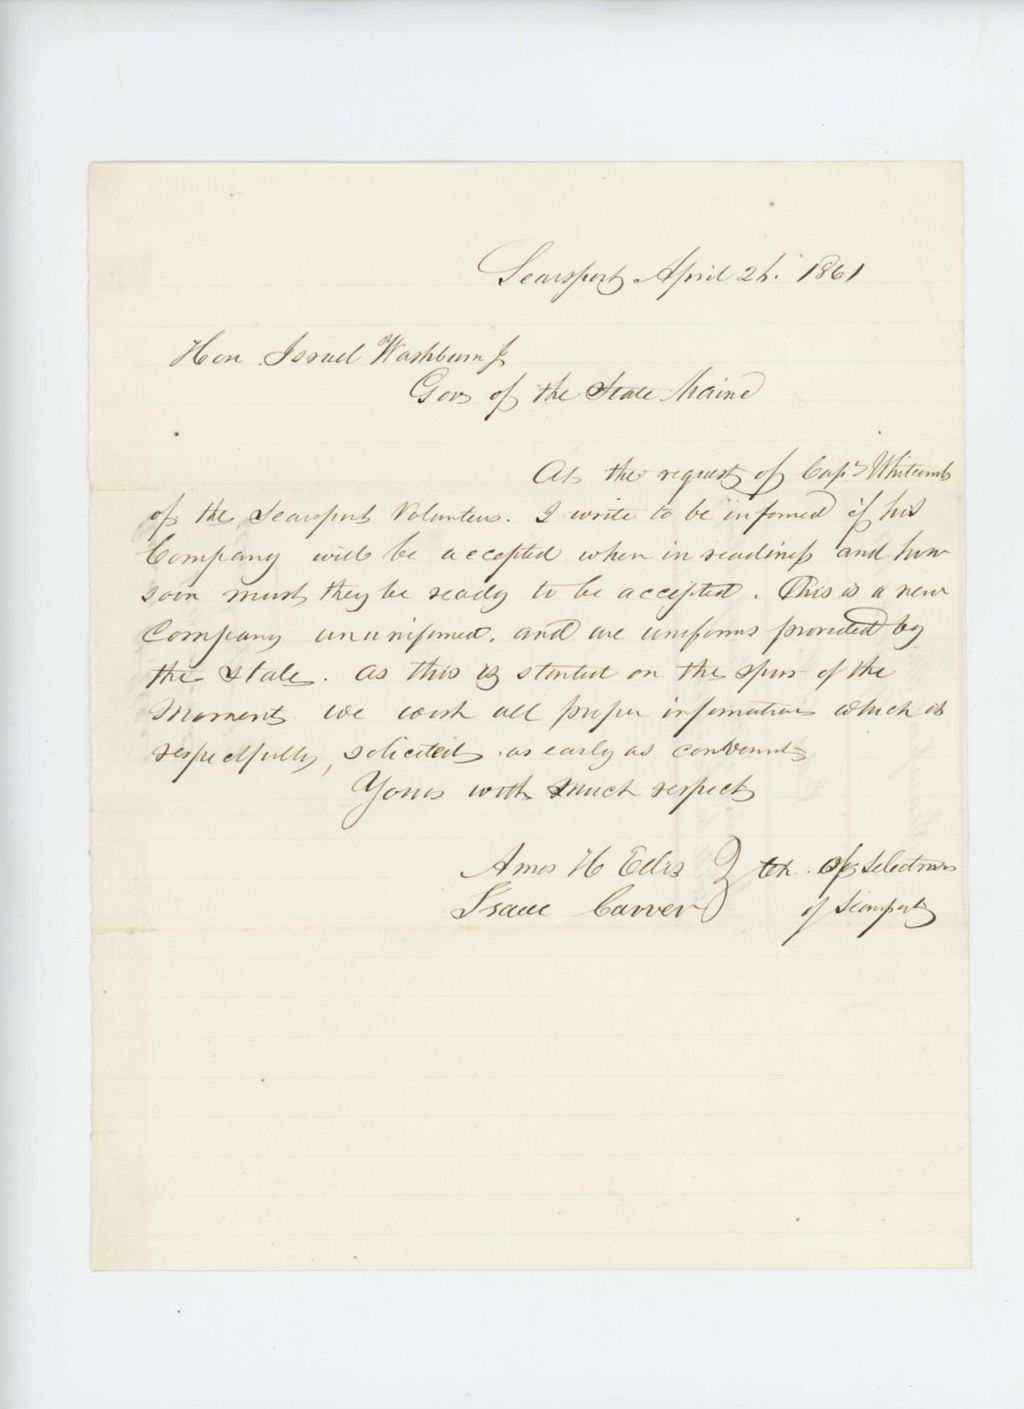 Searsport April 26. 1861
Hon Israel Washburn Jr
Gov of the State Maine
At the request of Capt Whitcomb
of the Searsport Volunteers. I write to be informed if his
Company will be accepted when in readiness and how
soon must they be ready to be accepted. This is a new
Company ununiformed. and are uniforms provided by
the State. as this is started on the spur of the
Moment we wish all proper information which is
respectfully, solicited as early as convenient
Yours with much respect
Amos H Ellis
Isaac Carver
Selectmen
of Searsport